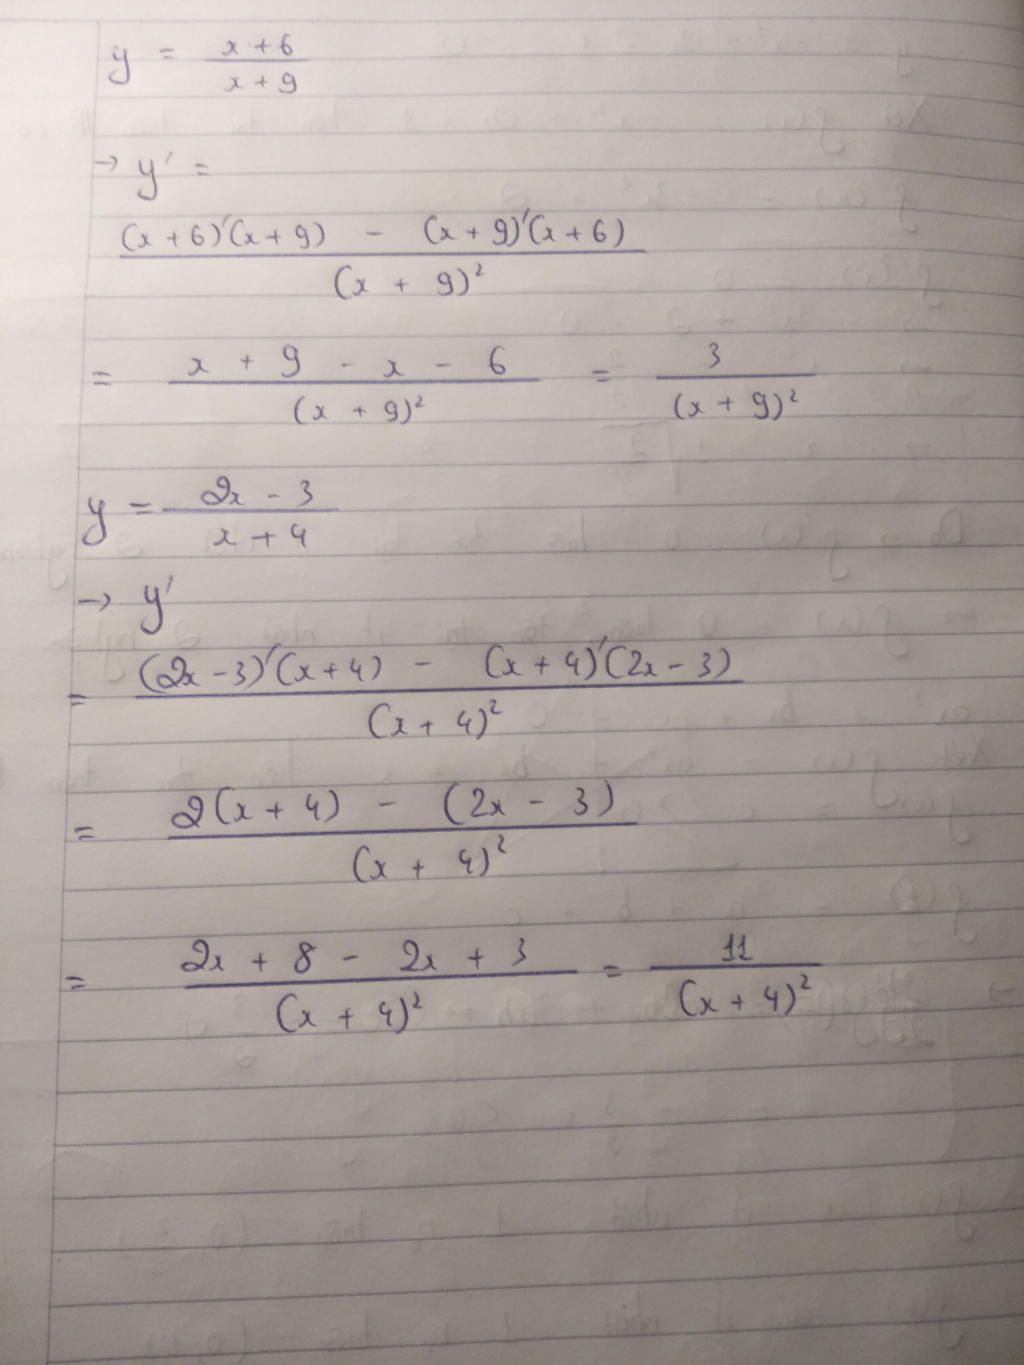 y = (x + 6)/(x + 9)
→ y' =
((x + 6)'(x + 9) - (x + 9)'(x + 6))/((x + 9)²)
= (x + 9 - x - 6)/((x + 9)²) = 3/((x + 9)²)
y = (2x - 3)/(x + 4)
→ y'
= ((2x - 3)'(x + 4) - (x + 4)'(2x - 3))/((x + 4)²)
= (2(x + 4) - (2x - 3))/((x + 4)²)
= (2x + 8 - 2x + 3)/((x + 4)²) = 11/((x + 4)²)